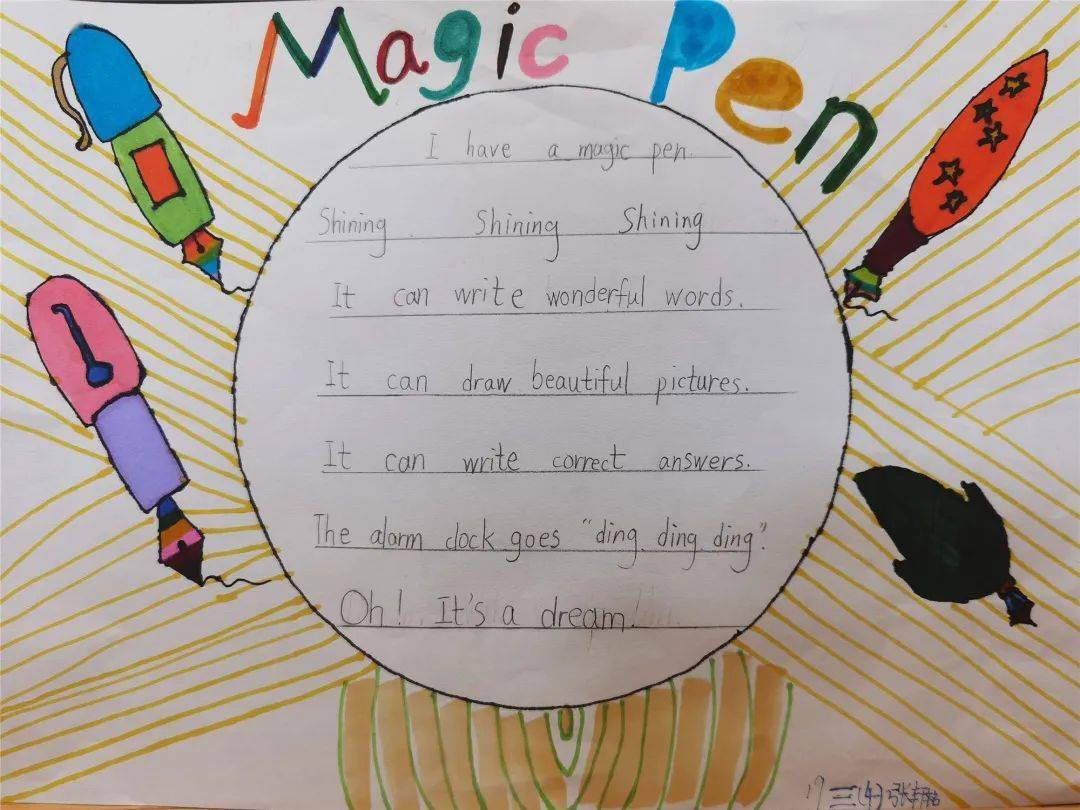 Magic Pen
I have a magic pen.
Shining Shining Shining
It can write wonderful words.
It can draw beautiful pictures.
It can write correct answers.
The alarm clock goes "ding ding ding".
Oh! It's a dream!
19 三(4) 张